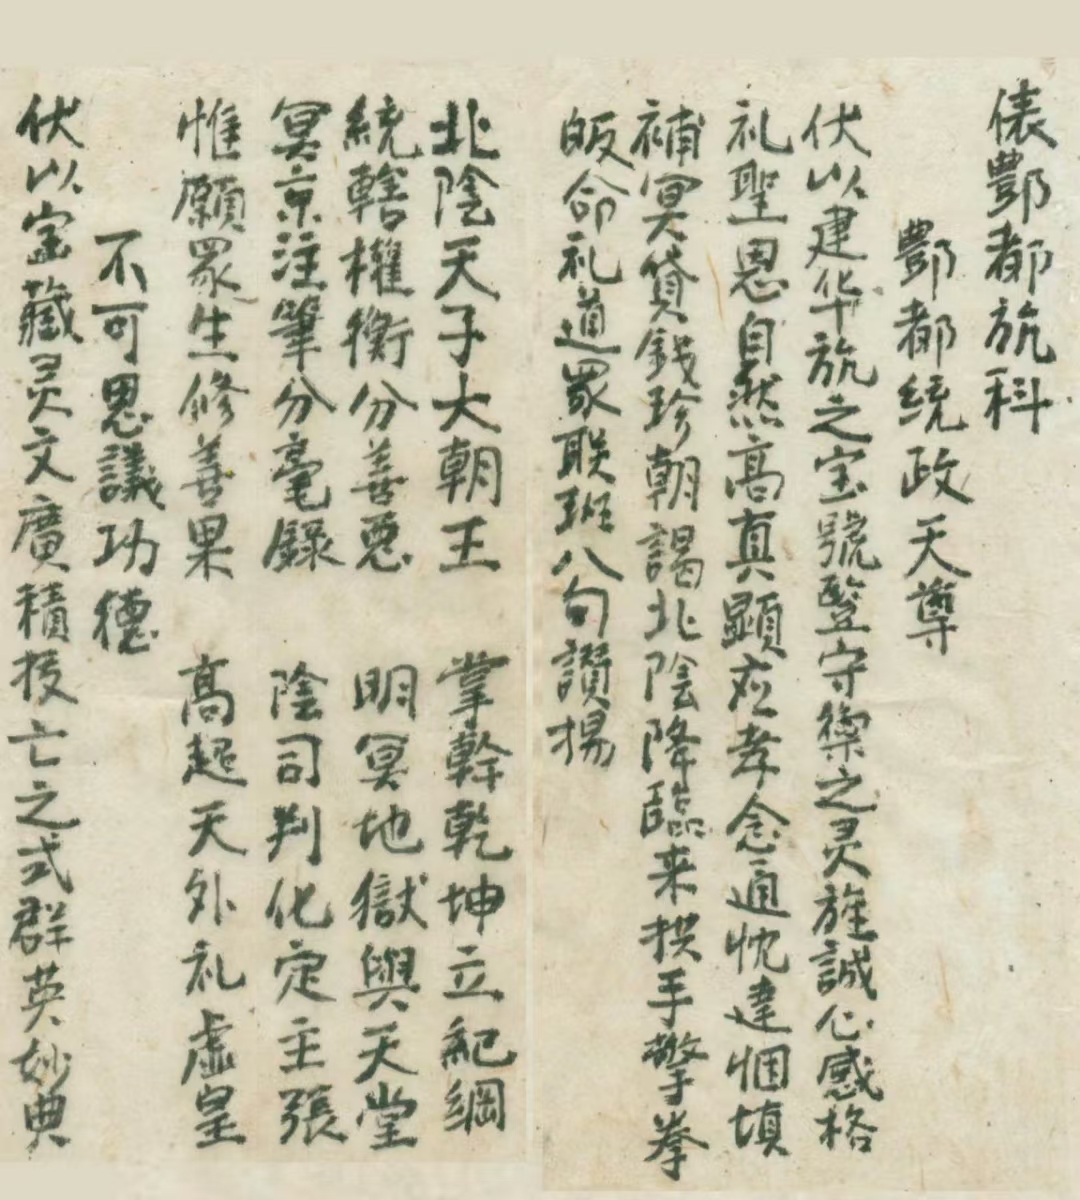 俵酆都旂科
酆都統政天尊
伏以建华旂之宝號豎守禦之灵旌誠心感格
礼聖恩自然高真顕应孝念通忱達悃填
補冥貸錢珍朝謁北陰降臨来拱手擎拳
皈命礼道眾联班八句讃揚
北陰天子大朝王　掌幹乾坤立紀綱
統轄權衡分善惡　明冥地獄與天堂
冥京注筆分毫錄　陰司判化定主張
惟願眾生修善果　高超天外礼虛皇
不可思議功德
伏以宝藏灵文廣積拔亡之式群英妙典